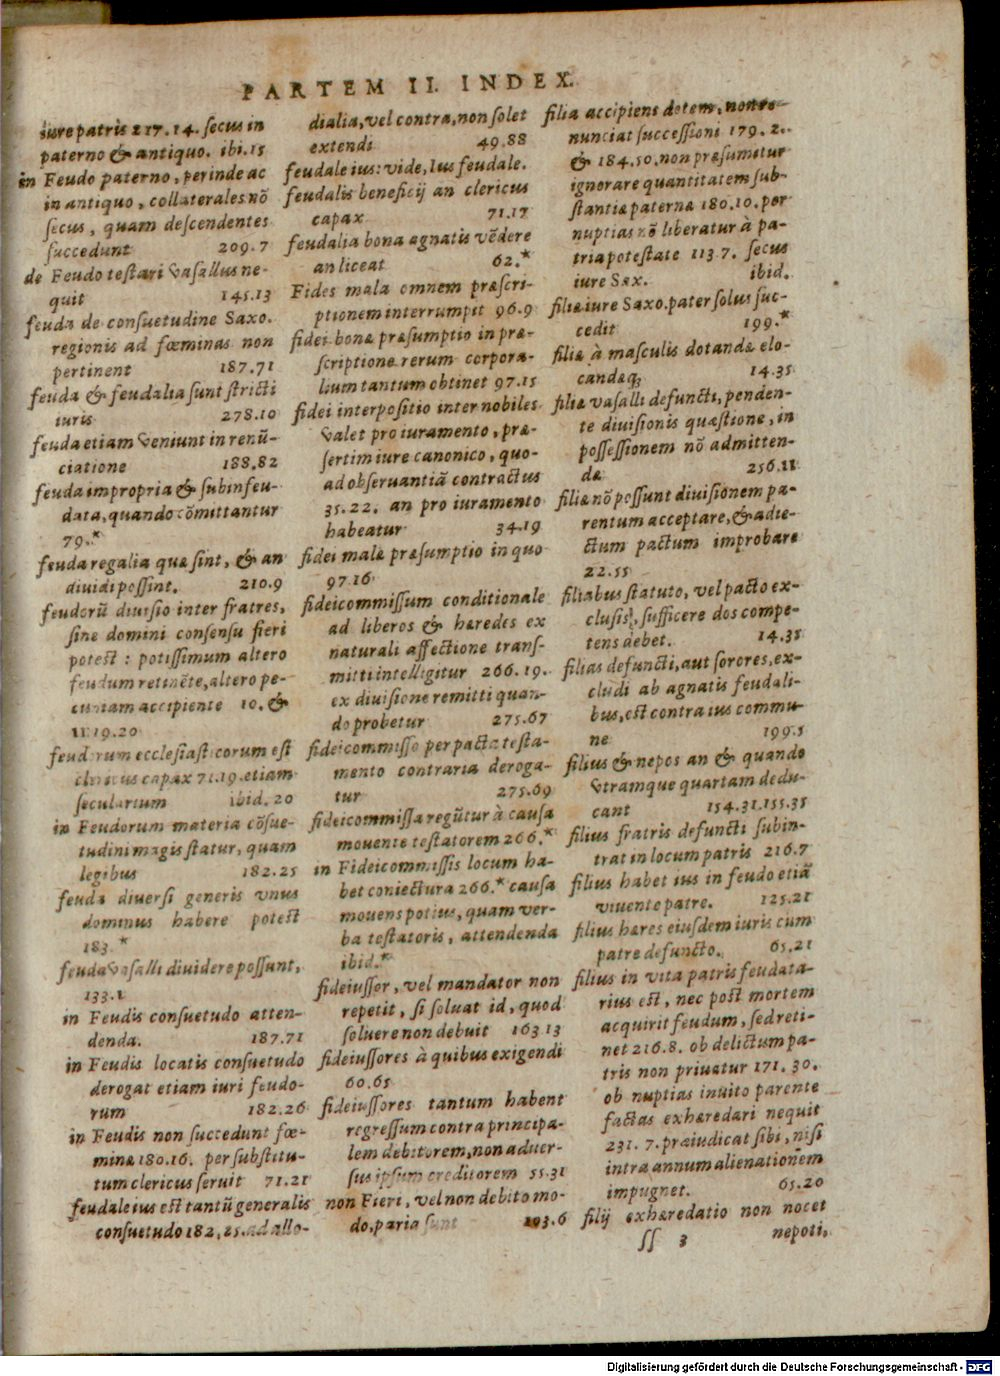 PARTEM II. INDEX.
iure patris 217.14. secus in
paterno & antiquo. ibi.15
in Feudo paterno, perinde ac
in antiquo, collaterales nõ
secus, quam descendentes
succedunt 209.7
de Feudo testari vasallus ne-
quit 145.13
feuda de consuetudine Saxo.
regionis ad fœminas non
pertinent 187.71
feuda & feudalia sunt stricti
iuris 278.10
feuda etiam veniunt in renũ-
ciatione 188,82
feuda impropria & subinfeu-
data, quando cõmittantur
79.*
feuda regalia quæ sint, & an
diuidi possint. 210.9
feudorũ diuisio inter fratres,
sine domini consensu fieri
potest : potissimum altero
feudum retinẽte, altero pe-
cuniam accipiente 10. &
11.19.20
feudorum ecclesiasticorum est
clericus capax 71.19. etiam
secularium ibid. 20
in Feudorum materia cõsue-
tudini magis statur, quam
legibus 182.25
feuda diuersi generis vnus
dominus habere potest
183.*
feuda vasalli diuidere possunt,
133.1
in Feudis consuetudo atten-
denda. 187.71
in Feudis locatis consuetudo
derogat etiam iuri feudo-
rum 182.26
in Feudis non succedunt fœ-
minæ 180.16. per substitu-
tum clericus seruit 71.21
feudale ius est tantũ generalis
consuetudo 182,25. ad allo-
dialia, vel contra, non solet
extendi 49.88
feudale ius: vide, Ius feudale.
feudalis beneficij an clericus
capax 71.17
feudalia bona agnatis vẽdere
an liceat 62.*
Fides mala omnem præscri-
ptionem interrumpit 96.9
fidei bonæ præsumptio in præ-
scriptione rerum corpora-
lium tantum obtinet 97.15
fidei interpositio inter nobiles
valet pro iuramento, præ-
sertim iure canonico, quo-
ad obseruantiã contractus
35.22. an pro iuramento
habeatur 34.19
fidei malæ præsumptio in quo
97.16
fideicommissum conditionale
ad liberos & hæredes ex
naturali affectione trans-
mitti intelligitur 266.19.
ex diuisione remitti quan-
do probetur 275.67
fideicommisso per pacta testa-
mento contraria deroga-
tur 275.69
fideicommissa regũtur à causa
mouente testatorem 266.*
in Fideicommissis locum ha-
bet coniectura 266.* causa
mouens potius, quam ver-
ba testatoris, attendenda
ibid.*
fideiussor, vel mandator non
repetit, si soluat id, quod
soluere non debuit 163.13
fideiussores à quibus exigendi
60.65
fideiussores tantum habent
regressum contra principa-
lem debitorem, non aduer-
sus ipsum creditorem 55.31
non Fieri, vel non debito mo-
do, paria sunt 193.6
filia accipiens dotem, non re-
nunciat successioni 179.2.
& 184.50. non præsumitur
ignorare quantitatem sub-
stantiæ paternæ 180.10. per
nuptias nõ liberatur à pa-
tria potestate 113.7. secus
iure Sax. ibid.
filiæ iure Saxo. pater solus suc-
cedit 199.*
filiæ à masculis dotandæ elo-
candæq; 14.35
filiæ vasalli defuncti, penden-
te diuisionis quæstione, in
possessionem nõ admitten-
dæ 256.11
filiæ nõ possunt diuisionem pa-
rentum acceptare, & adie-
ctum pactum improbare
22.55
filiabus statuto, vel pacto ex-
clusis, sufficere dos compe-
tens debet. 14.35
filias defuncti, aut sorores, ex-
cludi ab agnatis feudali-
bus, est contra ius commu-
ne 199.5
filius & nepos an & quando
vtramque quartam dedu-
cant 154.31.155.35
filius fratris defuncti subin-
trat in locum patris 216.7
filius habet ius in feudo etiã
viuente patre. 125.21
filius hæres eiusdem iuris cum
patre defuncto. 65.21
filius in vita patris feudata-
rius est, nec post mortem
acquirit feudum, sed reti-
net 216.8. ob delictum pa-
tris non priuatur 171.30.
ob nuptias inuito parente
factas exhæredari nequit
231.7. præiudicat sibi, nisi
intra annum alienationem
impugnet. 65.20
filij exhæredatio non nocet
ss 3 nepoti,
Digitalisierung gefördert durch die Deutsche Forschungsgemeinschaft - DFG